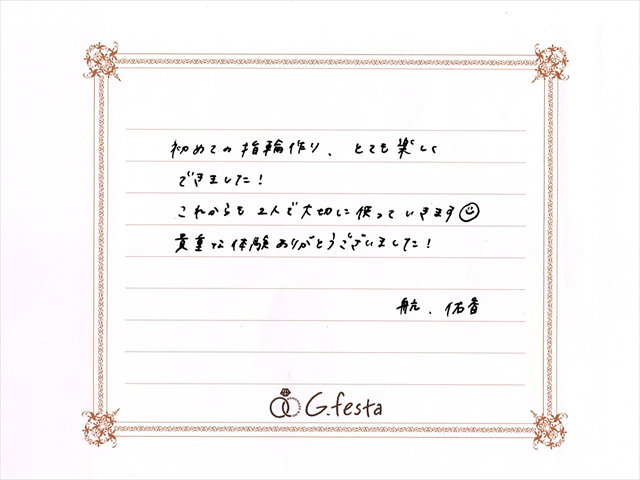 初めての指輪作り、とても楽しく
できました！
これからも2人で大切に使っていきます☺
貴重な体験ありがとうございました！
航、佑香
G.festa